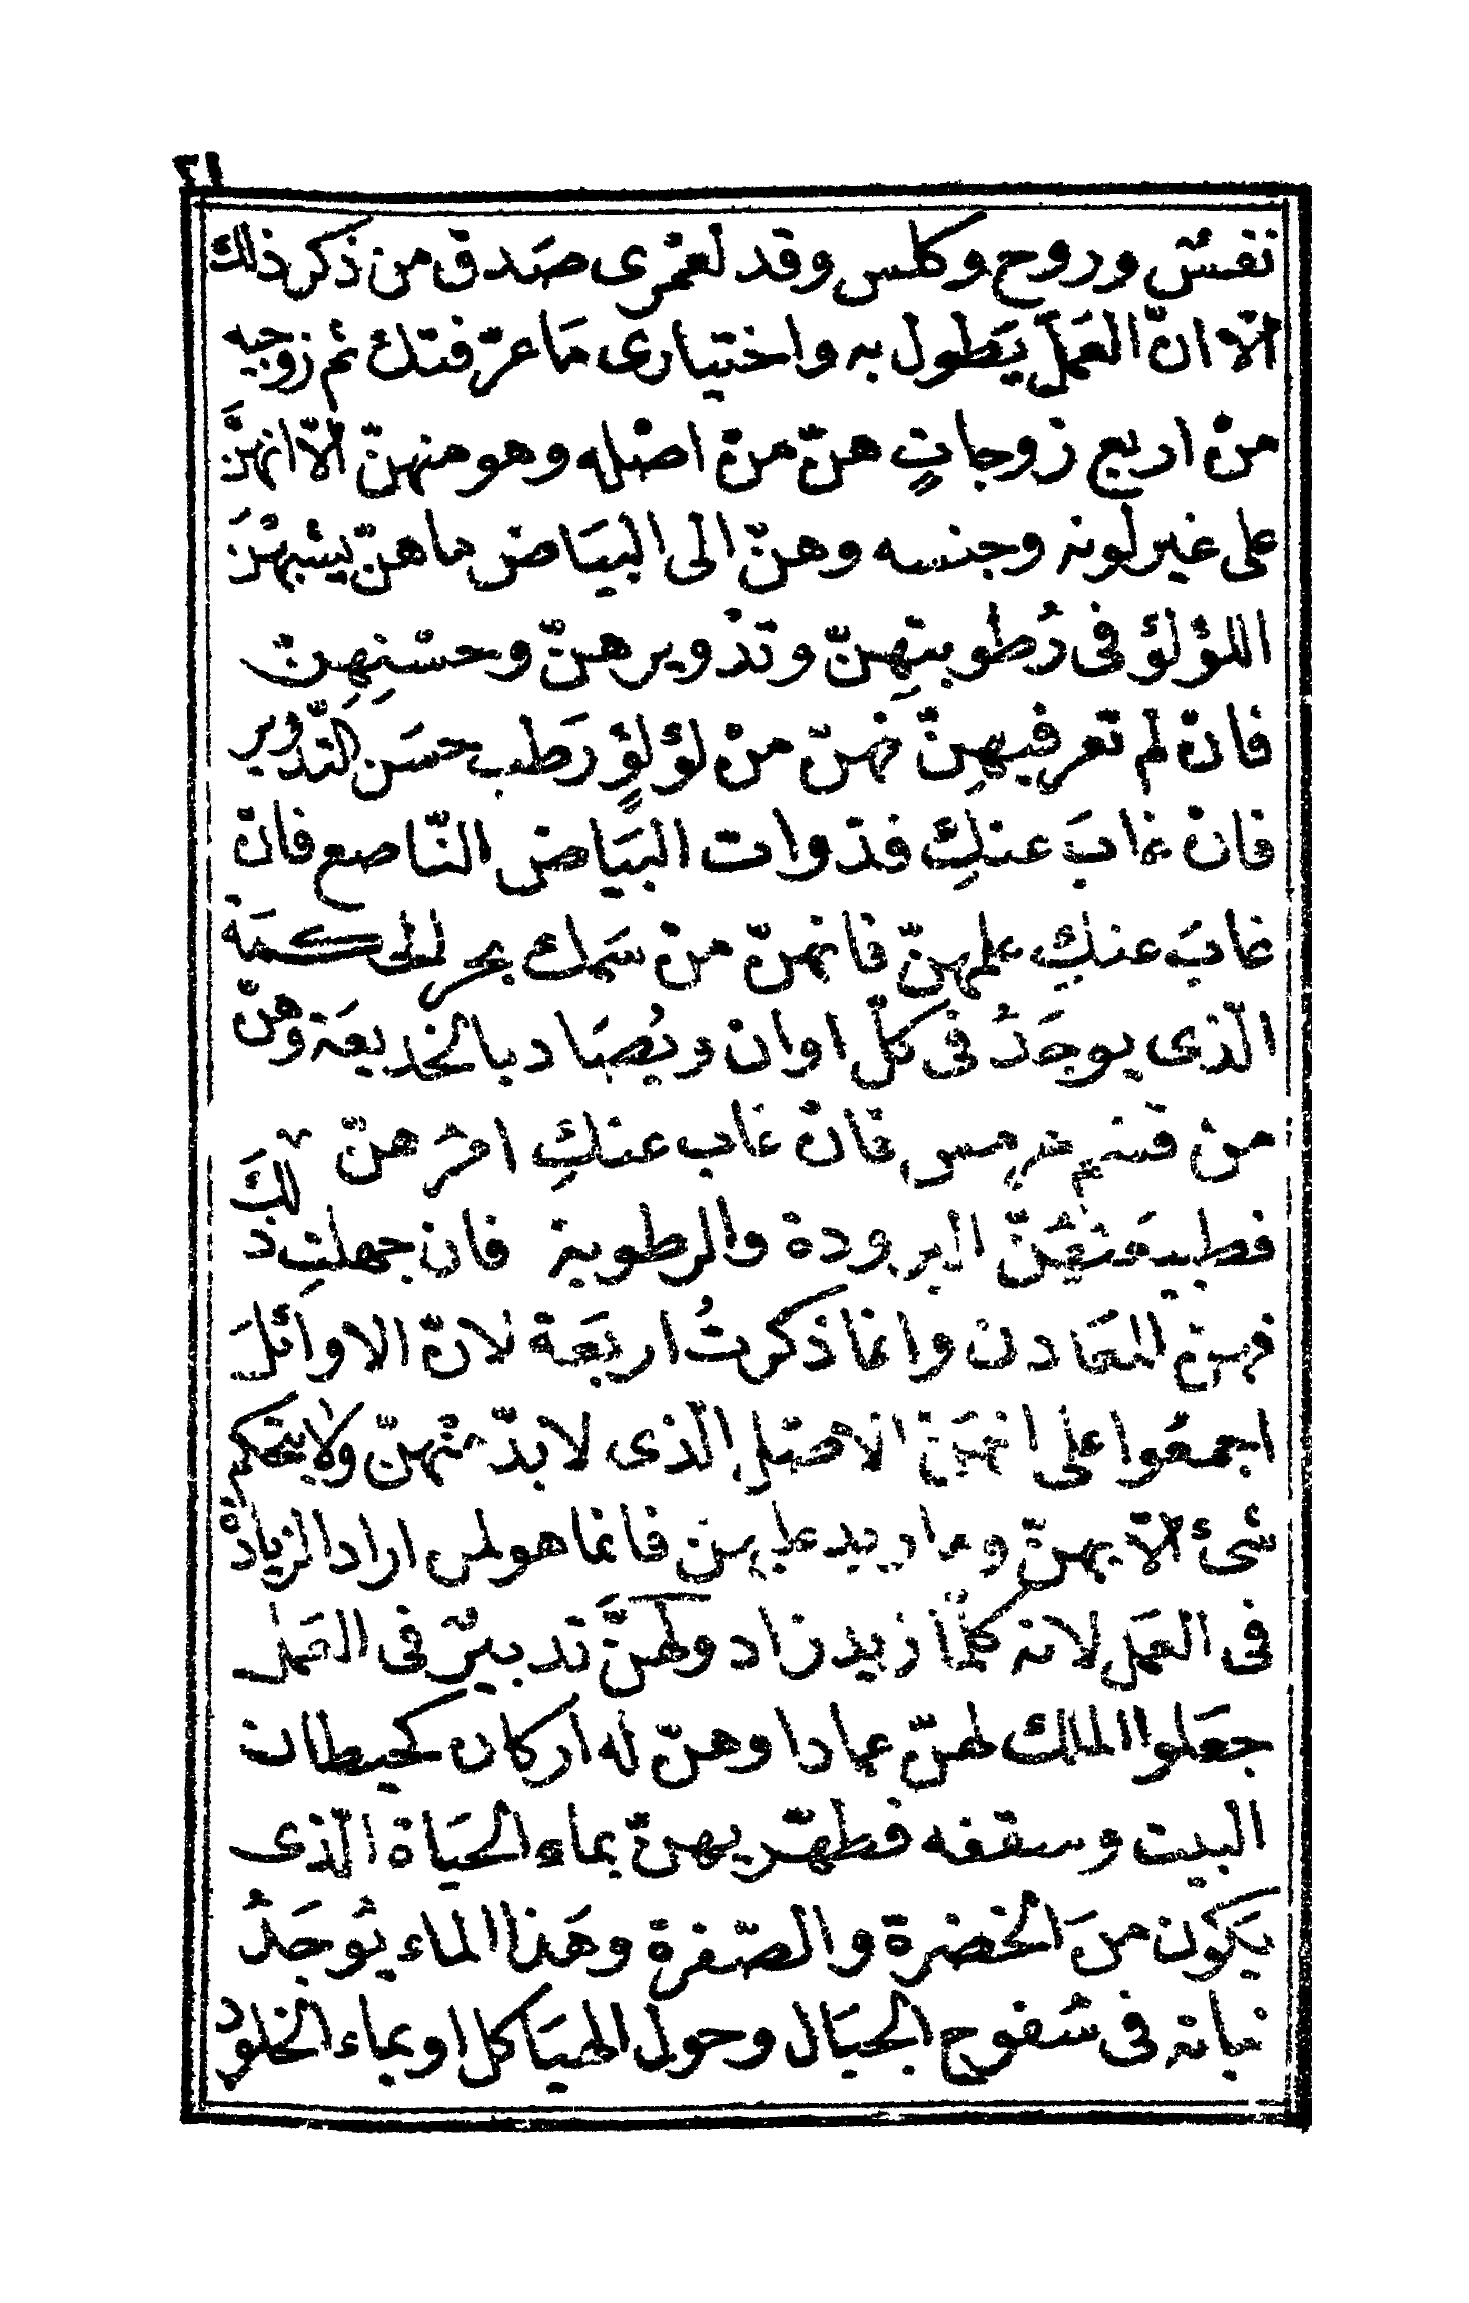 ٢١
نفسٌ وروح وكلس وقد لعمْرى صَدق من ذكر ذلك
الّا انّ العمَلَ يَطول به واختيارى مَا عرّفتك ثم زوجيه
منْ اربع زوجاتٍ هنّ منْ اصْله وهو منهنّ الّا انهنَّ
على غير لونه وجنسه وهنّ الى البيَاض ما هنّ يشبهْنَ
اللؤلؤ فى رُطوبتهِنّ وتدْويرهنّ وحسْنِهِنّ
فان لم تعرفيهِنّ فهنّ منْ لؤلؤٍ رَطب حسَن التّدْوير
فانْ غابَ عنكِ فذوات البيَاض النّاصع فان
غابَ عنكِ علمهنّ فانهنّ منْ سَمك بحر لطى كسمَة
الّذى يوجَدُ فى كلّ اوان ويُصَاد بالخديعَة وهنّ
منْ قسْم هرمس فانْ غاب عنكِ امرُ هنّ
فطبيعَتهُنّ البرودة والرطوبة فان جهلتِ ذلكَ
فهنّ المعَادن وانما ذكرتُ اربَعة لانّ الاوائلَ
اجمعُوا على انهَنّ الاصْل الّذى لا بدّ منْهنّ ولا يتحكم
شئ الّا بهنّ وما اريد عليهن فانما هو لمن اراد الزيادةْ
فى العمَل لانه كلّما زيد زاد ولهنَّ تدبيرٌ فى العمَل
جعَلوا الملك لهنّ عمادا وهنّ له اركان كحيطان
البيت وسقفه فطهّر بهنّ بماء الحيَاة الّذى
يَكون منَ الخضرة والصّفرة وهَذا الماء يُوجَدُ
نباته فى سُفوح الجبَال وحول الهيَاكل او بماء الخلود